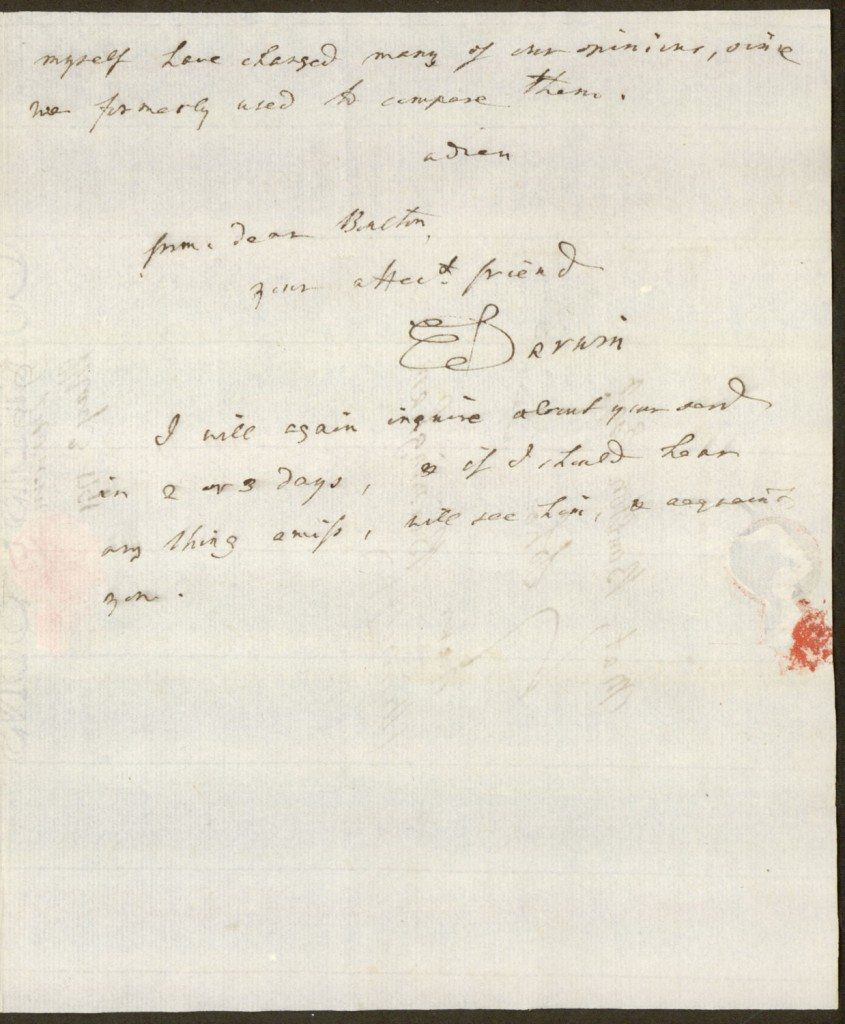 myself have changed many of our opinions, since
we formerly used to compare them.
adieu
from, dear Bolton,
your affect. friend
E Darwin
I will again inquire about your
in 2 or 3 days, & if I should hear
any thing amiss, will see him, & acquaint
you.